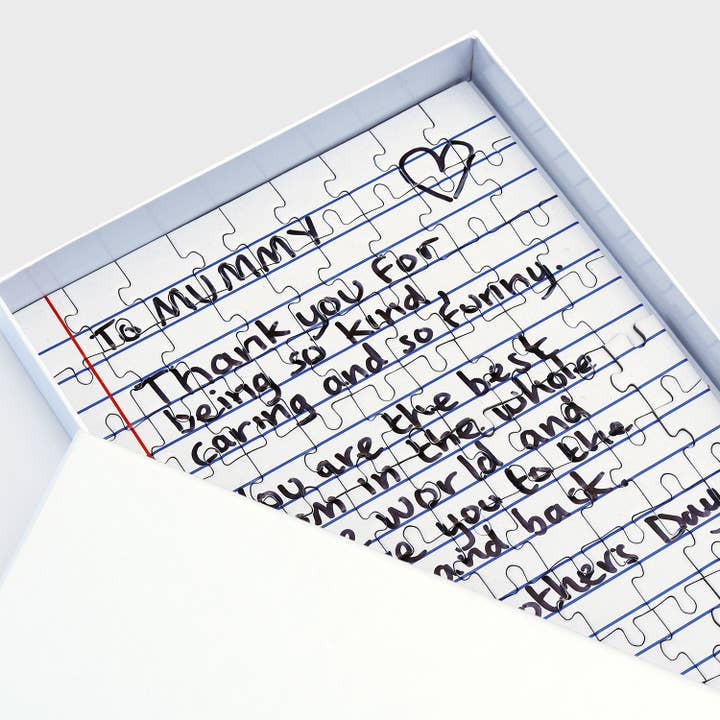 To MUMMY
Thank you For
being so kind,
caring and so funny.
You are the best
in the whole
world and
you to the
and back.
others Day